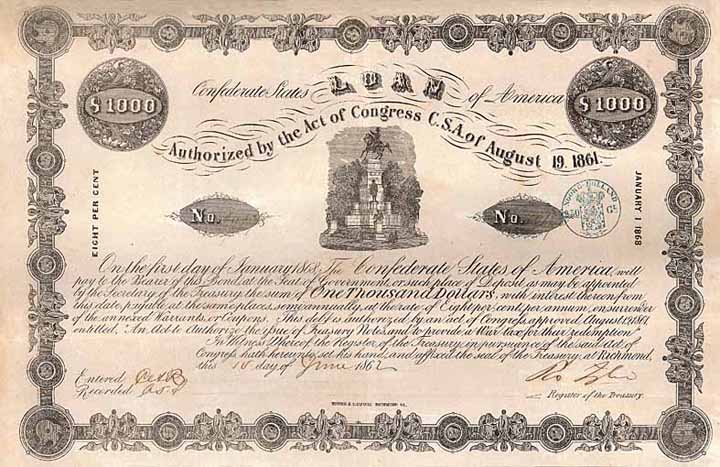 Confederate States LOAN of America
$1000
$1000
Authorized by the Act of Congress C.S.A. of August 19. 1861.
EIGHT PER CENT
JANUARY 1 1868
No.
No.
NOORD HOLLAND
On the first day of January 1868, The Confederate States of America, will
pay to the Bearer of this Bond, at the Seat of Government, or such place of Deposit, as may be appointed
by the Secretary of the Treasury, the sum of One Thousand Dollars, with interest thereon from
this date, payable at the same place, semi-annually, at the rate of Eight per cent, per annum, on surrender
of the annexed Warrants, or Coupons. This debt is authorized by an act of Congress, approved, August 19, 1861.
entitled, "An Act to Authorize the issue of Treasury Notes, and to provide a War tax for their redemption."
In Witness Whereof, the Register of the Treasury, in pursuance of the said act of
Congress, hath hereunto set his hand, and affixed the seal of the Treasury, at Richmond,
this 10 day of June 1862
Entered
Recorded
Register of the Treasury.